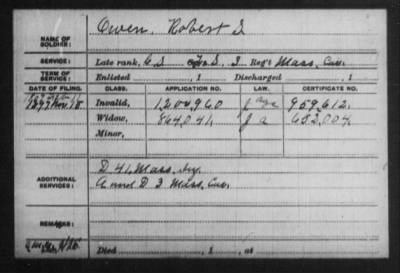 NAME OF SOLDIER: Owen, Robert I
SERVICE: Late rank, Reg't Mass. Cav.
TERM OF SERVICE: Enlisted , 1 Discharged , 1
DATE OF FILING. CLASS. APPLICATION NO. LAW. CERTIFICATE NO.
Invalid, 1,204,960 959,612.
Widow, 864,041. 653,004
Minor,
ADDITIONAL SERVICES: D 41, Mass. Inf.
A and D 3 Mass. Cav.
REMARKS:
Died , 1 , at